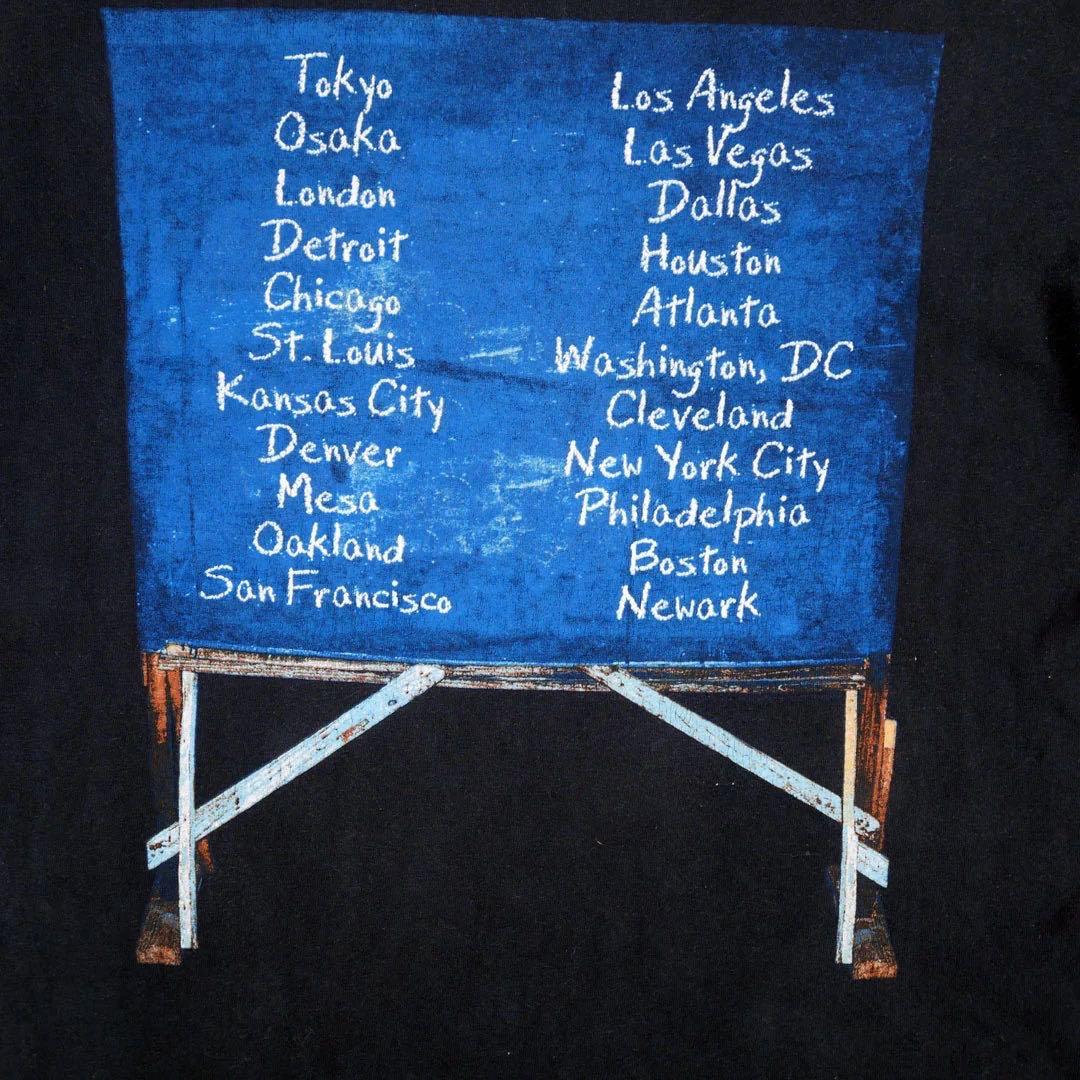 Tokyo
Osaka
London
Detroit
Chicago
St. Louis
Kansas City
Denver
Mesa
Oakland
San Francisco
Los Angeles
Las Vegas
Dallas
Houston
Atlanta
Washington, DC
Cleveland
New York City
Philadelphia
Boston
Newark